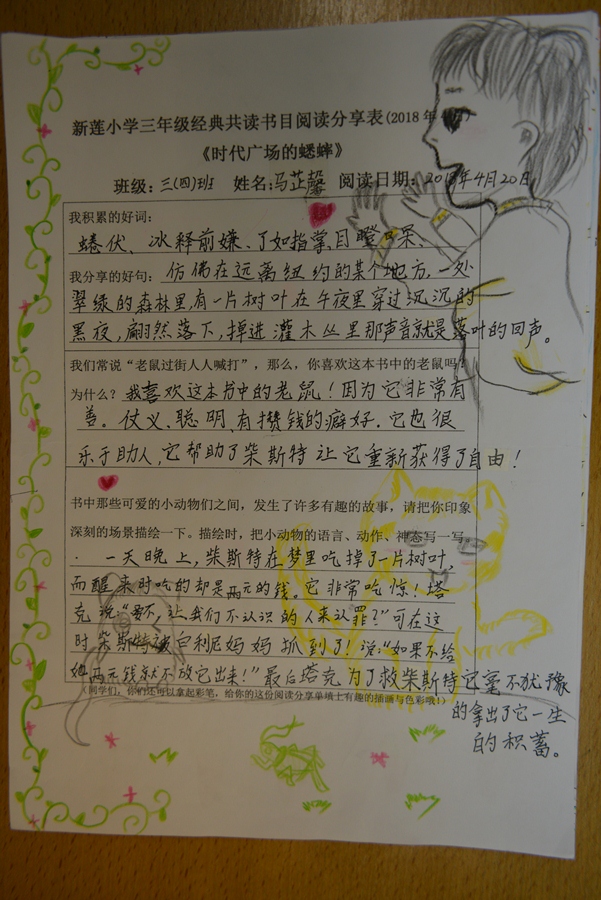 新莲小学三年级经典共读书目阅读分享表(2018年4月)
《时代广场的蟋蟀》
班级:三(四)班 姓名:马芷馨 阅读日期:2018年4月20日
我积累的好词:
蜷伏、冰释前嫌、了如指掌、目瞪口呆、
我分享的好句: 仿佛在远离纽约的某个地方,一处
翠绿的森林里,有一片树叶在午夜里穿过沉沉的
黑夜,翩然落下,掉进灌木丛里那声音就是落叶的回声。
我们常说“老鼠过街人人喊打”,那么,你喜欢这本书中的老鼠吗?
为什么? 我喜欢这本书中的老鼠!因为它非常有
善。仗义、聪明、有攒钱的癖好。它也很
乐于助人,它帮助了柴斯特让它重新获得了自由!
书中那些可爱的小动物们之间,发生了许多有趣的故事,请把你印象
深刻的场景描绘一下。描绘时,把小动物的语言、动作、神态写一写
一天晚上,柴斯特在梦里吃掉了一片树叶,
而醒来时吃的却是两元的钱。它非常吃惊!塔
克说:“要不,让我们不认识的人来认罪?”可在这
时柴斯特被白利尼妈妈抓到了!说:“如果不给
她两元钱就不放它出来!”最后塔克为了救柴斯特它毫不犹豫
(同学们,你们还可以拿起彩笔,给你的这份阅读分享单填上有趣的插画与色彩哦!)
的拿出了它一生
的积蓄。